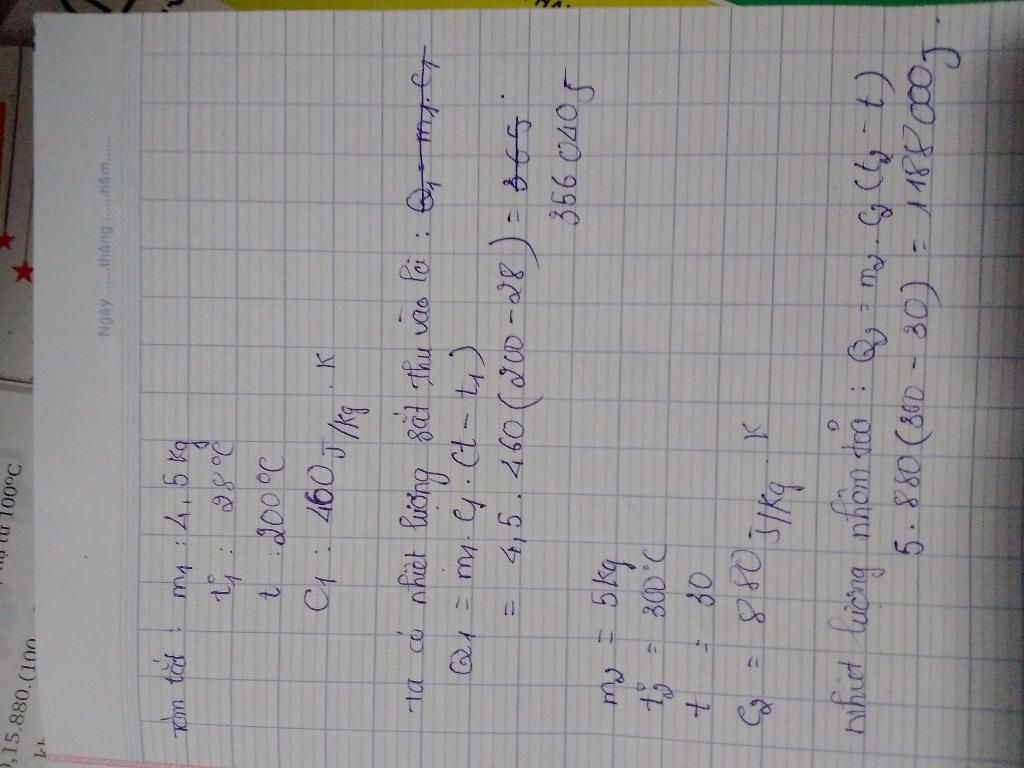 Ngày ......tháng ......năm......
tóm tắt : m1 : 4,5 kg
t°1 : 28°C
t : 200°C
C1 : 460 J/kg . K
ta có nhiệt lượng sắt thu vào là : Q1 = m1. C1
Q1 = m1. C1 . (t - t1)
= 4,5 . 460 (200 - 28) = 365 .
356 040 J
m2 = 5kg
t°2 = 300°C
t = 30
C2 = 880 J/kg . K
nhiệt lượng nhôm tỏa : Q2 = m2 . C2 (t2 - t)
5 . 880 (300 - 30) = 1188 000 J .
), 15.880.(100
hạ từ 100°C